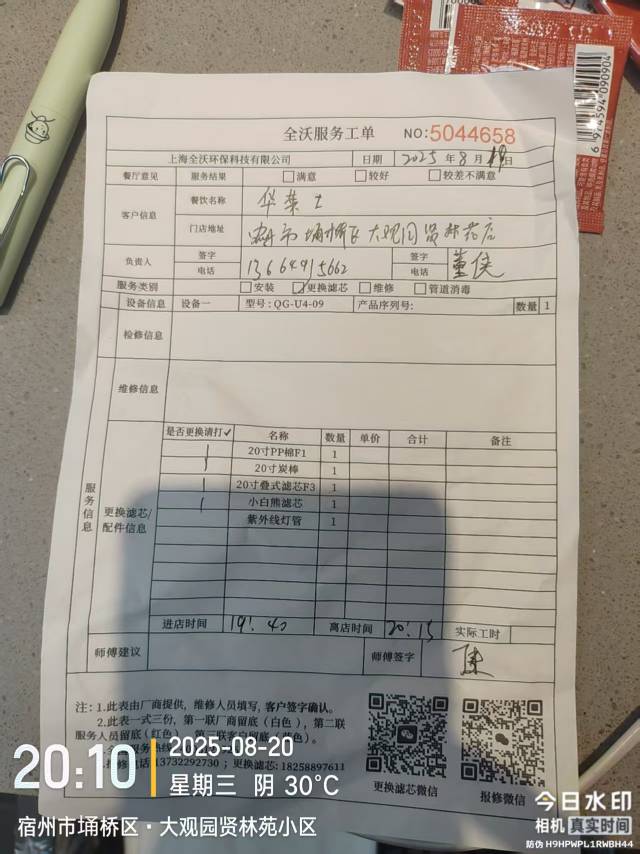 全沃服务工单 NO:5044658
上海全沃环保科技有限公司 日期 2025 年 8 月 日
餐厅意见 服务结果 满意 较好 较差不满意
客户信息 餐饮名称 华莱士
门店地址 宿州市埇桥区大观园贤林苑店
负责人 签字 电话 13664915662 签字 电话 董侠
服务类别 安装 更换滤芯 维修 管道消毒
服务信息
设备信息 设备一 型号: QG-U4-09 产品序列号: 数量 1
检修信息
维修信息
更换滤芯/配件信息
是否更换请打✓ 名称 数量 单价 合计 备注
20寸PP棉F1 1
20寸炭棒 1
20寸叠式滤芯F3 1
小白熊滤芯 1
紫外线灯管 1
进店时间 19:40 离店时间 20:15 实际工时
师傅建议 师傅签字 陈
注: 1.此表由厂商提供, 维修人员填写, 客户签字确认。
2.此表一式三份, 第一联厂商留底(白色), 第二联
服务人员留底(红色), 第三联客户留底(蓝色)。
13732292730 ; 更换滤芯: 18258897611
更换滤芯微信 报修微信
20:10
2025-08-20
星期三 阴 30°C
宿州市埇桥区·大观园贤林苑小区
今日水印
相机 真实时间
防伪 H9HPWPL1RWBH44
6 974594 090904